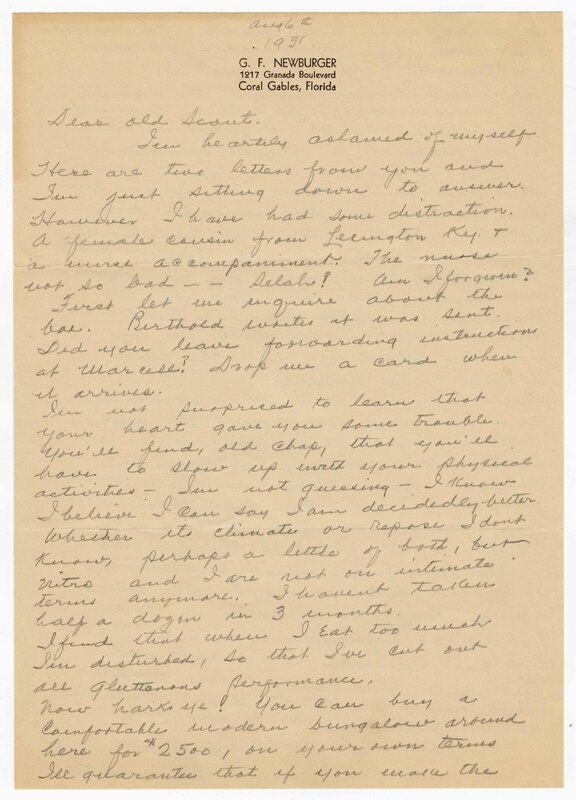 Aug 6th
1931
G. F. NEWBURGER
1217 Granada Boulevard
Coral Gables, Florida
Dear old Scout.
I'm heartily ashamed of myself
Here are two letters from you and
I'm just sitting down to answer.
However I have had some distraction.
A female cousin from Lexington Ky. &
a nurse accompaniment. The nurse
not so bad — — Selah! Am I forgiven?
First let me inquire about the
box. Berthold writes it was sent.
Did you leave forwarding instructions
at Marcell? Drop me a card when
it arrives.
I'm not surprised to learn that
your heart gave you some trouble.
You'll find, old chap, that you'll
have to slow up with your physical
activities – I'm not guessing – I know
I believe I can say I am decidedly better
Whether its climate or repose I dont
know, perhaps a little of both, but
Nitro and I are not on intimate
terms anymore. I havent taken
half a dozen in 3 months.
I find that when I Eat too much
I'm disturbed, so that I've cut out
all gluttonous performance.
Now hark ye! You can buy a
Comfortable modern bungalow around
here for $2500, on your own terms
I'll guarantee that if you make the